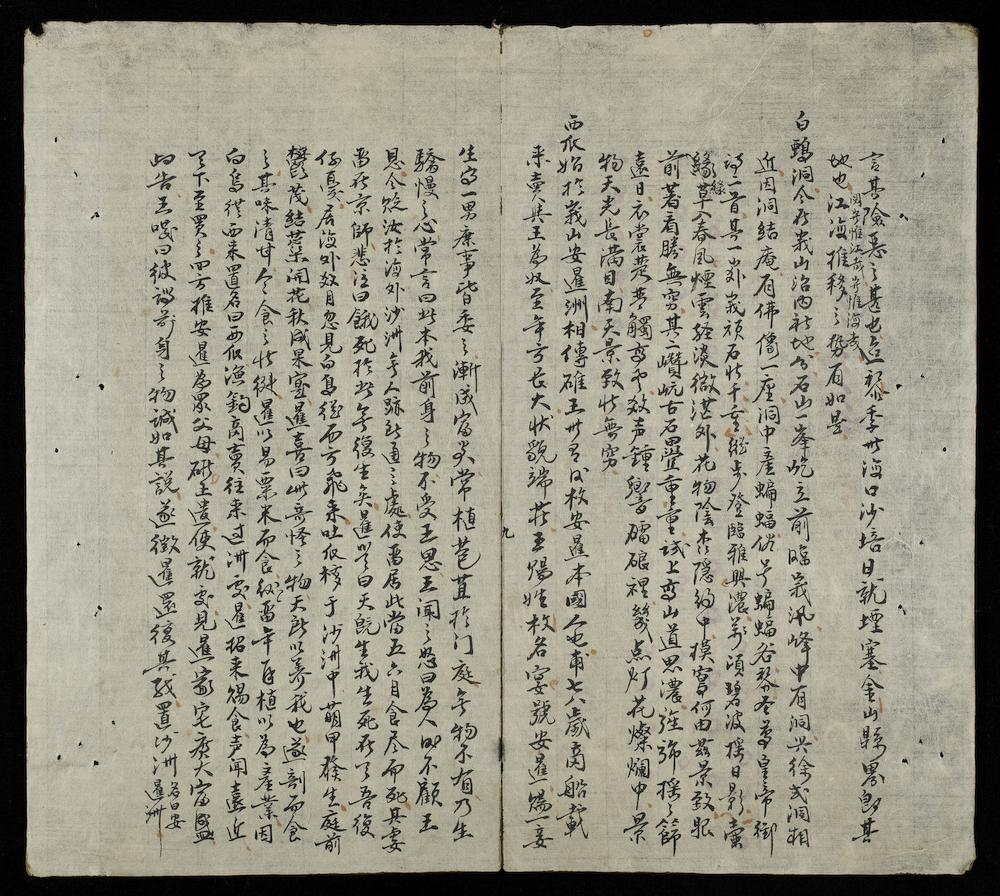 言甚險惡之甚也迨黎季世海口沙培日就堙塞金山縣界即其
地也江海推移之勢有如是
白鵶洞今在峩山治內社地分石山一峯屹立前臨峩汎峰中有洞與徐式洞相
近因洞結庵有佛像一座洞中產蝙蝠俗号蝙蝠谷黎圣尊皇帝御
詩一首其一岁峩頑石状千重縱步登臨雅興濃万頃碧波摇日影壷
緣草入春風煙雲經淡微茫外花物陰本隱約中摸寫何由茲景致眼
前着看勝無窮其二巑岏古石疊重重試上高山道思濃推歸摇之節
遠日衣裳楚楚觸高敲声鍾響磂硍裡幾点灯花燦爛中景
物天光長滿目南天景致状無窮
西瓜始於峩山安暹洲相傳雄王世有枚安暹本國人也甫七八歲商船載
来賣與王為奴至年方長大状貌端莊王賜姓枚名宴號安暹賜一妾
九
生one男庶事皆委之漸成富家常植苞苴於门庭無物不有乃生
驕慢之心常言曰此本我前身之物不受王恩王聞之怒曰為人臣不顧王
恩今放汝於海外沙洲無人跡所通之處使畱居此當五六月食尽而死其妻
畱於京師悲泣曰餓死於此無復生矣暹笑曰天既生我生死在天吾復
何憂居海外数月忽見白鳥從西方飛来吐瓜核于沙洲中萌甲發生庭前
欝茂結藁開花秋成果寔暹喜曰此奇怪之物天所以养我也遂剖而食
之其味清甘今食之状徤暹以易粟米而食餘畱年再植以為產業因
白鳥從西来置名曰西瓜漁釣商賣往来过洲處暹招来賜食声聞遠近
天下至買之四方推安暹為眾父母雄王遣使就安見暹家宅廣大富盛
歸告王嘆曰彼謂前身之物誠如其說遂徵暹還復其職置沙洲名曰安
暹洲